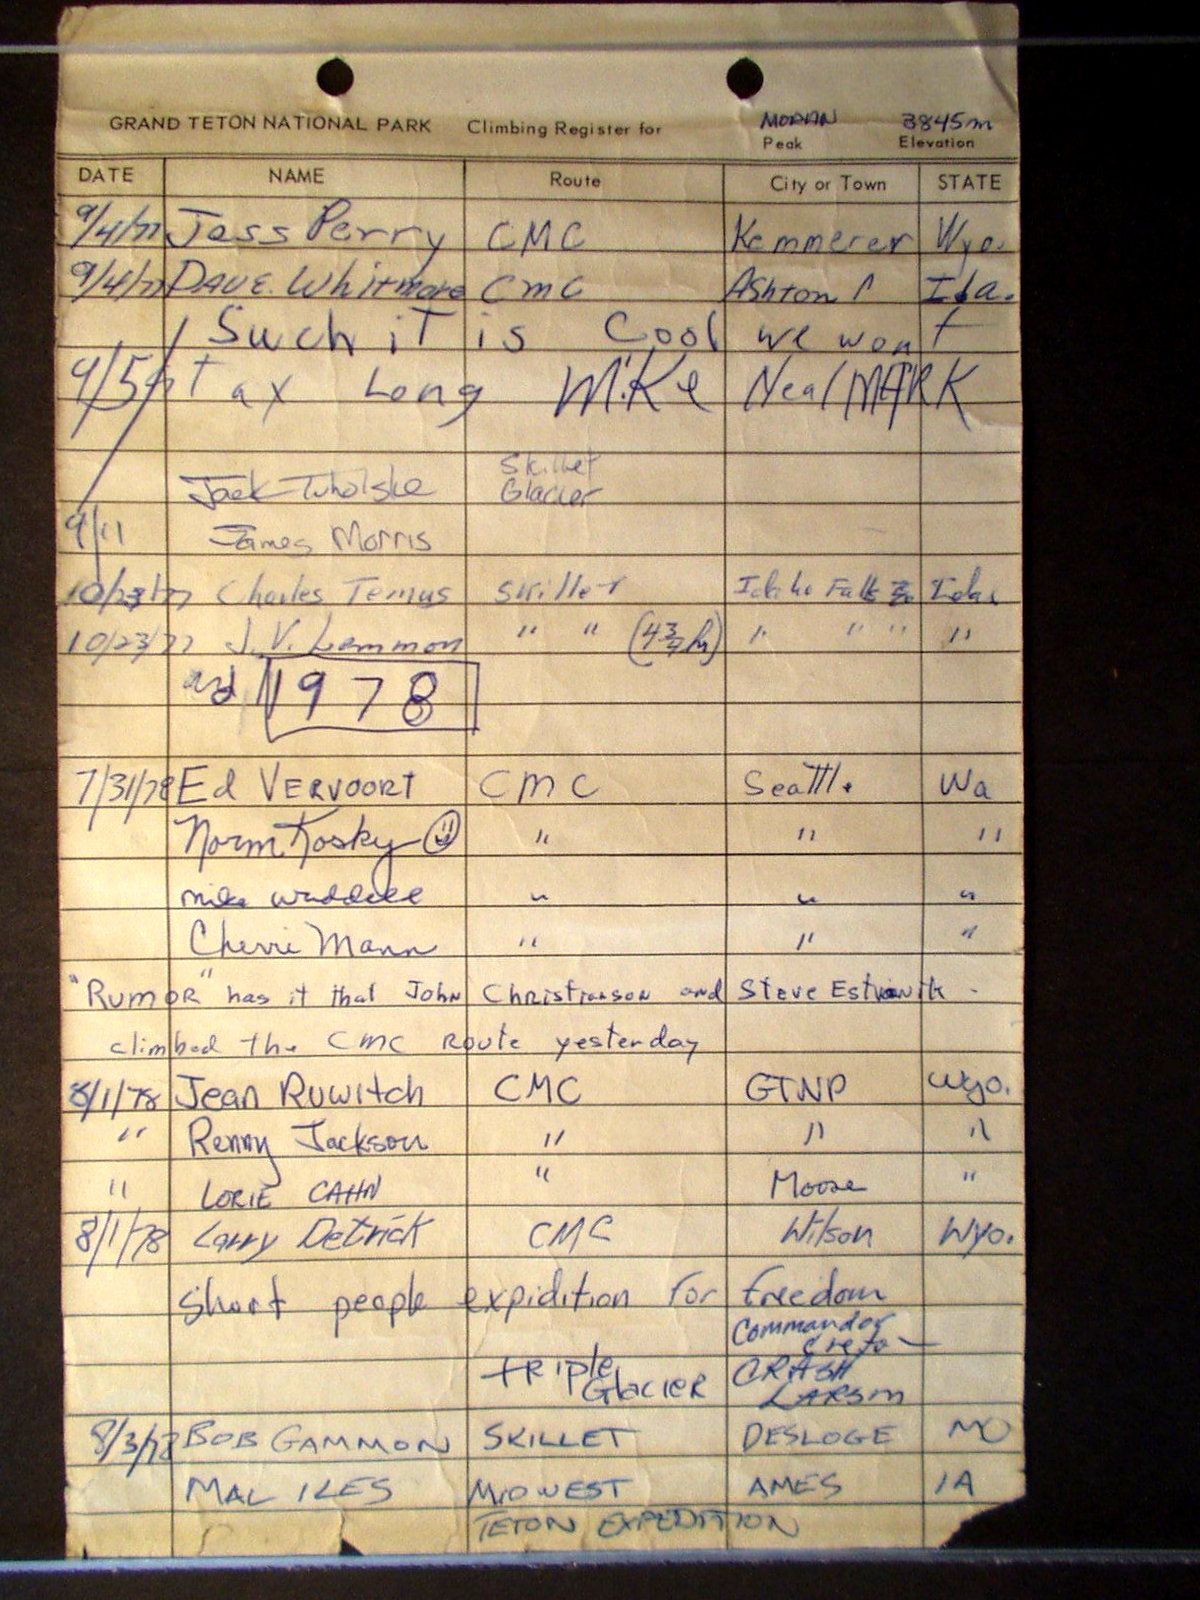 GRAND TETON NATIONAL PARK Climbing Register for MORAN Peak 3845m Elevation
DATE NAME Route City or Town STATE
9/4/77 Jess Perry CMC Kemmerer Wyo.
9/4/77 DAVE Whitmore CMC Ashton Ida.
Such iT is Cool we wont
9/5/77 Tax Long MiKe Neal MARK
Jack Tuholske Skillet Glacier
9/11 James Morris
10/23/77 Charles Ternus Skillet Idaho Falls Idaho
10/23/77 J.V. Lemmon " " (4 3/4 h) " " " "
and 1978
7/31/78 Ed VERVOORT CMC Seattle Wa
Norm Kosky " " "
mike waddell " " "
Cherri Mann " " "
"RumoR" has it that John Christianson and Steve
climbed the CMC Route yesterday
8/1/78 Jean Ruwitch CMC GTNP Wyo.
" Renny Jackson " " "
" LORIE CAHN " Moose "
8/1/78 Larry Detrick CMC Wilson Wyo.
Short people expidition for freedom
Commander
TRIPle Glacier CRASH LARSEN
8/3/78 BOB GAMMON SKILLET DESLOGE MO
MAL ILES MIDWEST AMES IA
TETON EXPEDITION